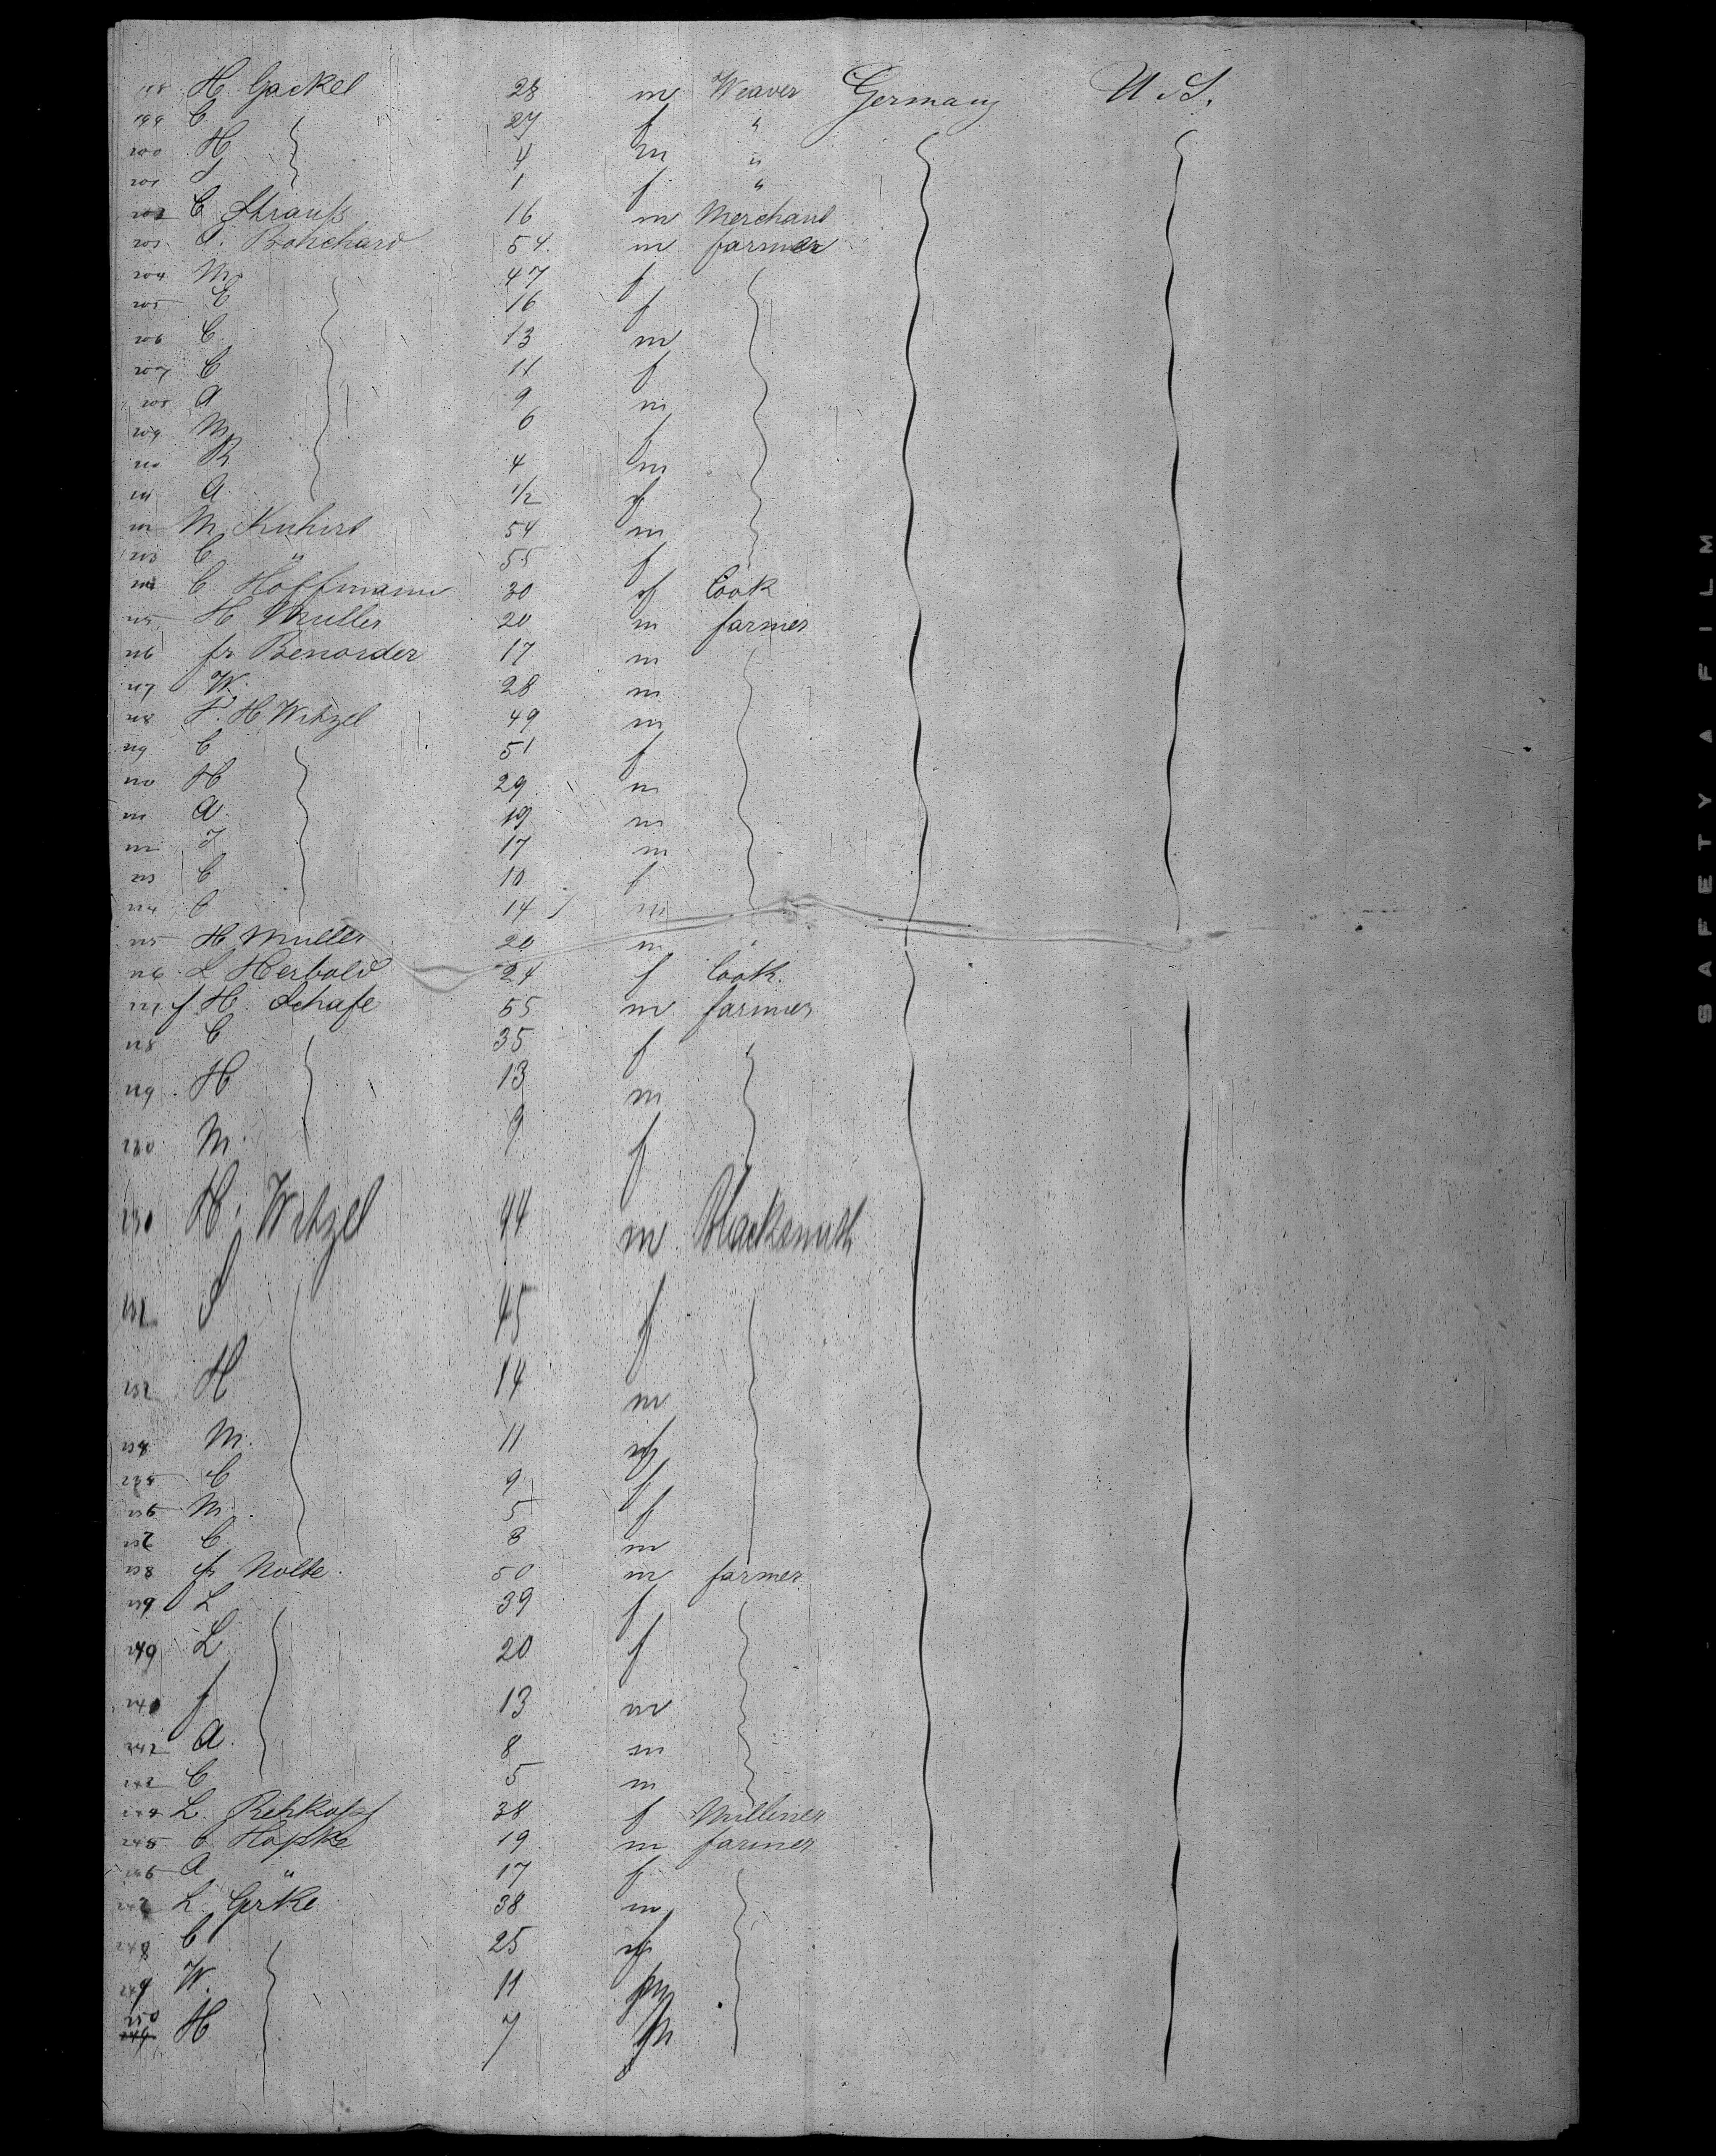 198 H Gackel 28 m Weaver Germany U.S.
199 C 27 f "
200 H 4 m "
201 1 f "
202 C Strauss 16 m Merchant
203 54 m farmer
204 M 47 f
205 E 16 f
206 C 13 m
207 C 11 f
208 A 9 m
209 M 6 f
210 R 4 m
211 A 1/2 f
212 M 54 m
213 C " 55 f
214 C. Hoffmann 30 f Cook
215 H Muller 20 m farmer
216 fr Benorder 17 m
217 W. 28 m
218 F. H Witzel 49 m
219 C 51 f
220 H 29 m
221 A. 19 m
222 J 17 m
223 C 10 f
224 C 14 m
225 H Muller 20 m "
226 L Herbold 24 f Cook.
227 f H Schafe 55 m farmer
228 C 35 f
229 H 13 m
230 M. 9 f
H. Witzel 44 m Blacksmith
S 45 f
232 H 14 m
234 M. 11 f
235 C 9 f
236 M. 5 f
237 C 3 m
238 fr Nolte. 50 m farmer
239 L 39 f
L 20 f
f 13 m
242 A. 8 m
C 5 m
244 L. Rehkopf 38 f Milliner
245 C Hopke 19 m farmer
246 A " 17 f
247 L. Gerke 38 m
248 C 25 f
249 W. 11 m
250 H 7 m
SAFETY A FILM